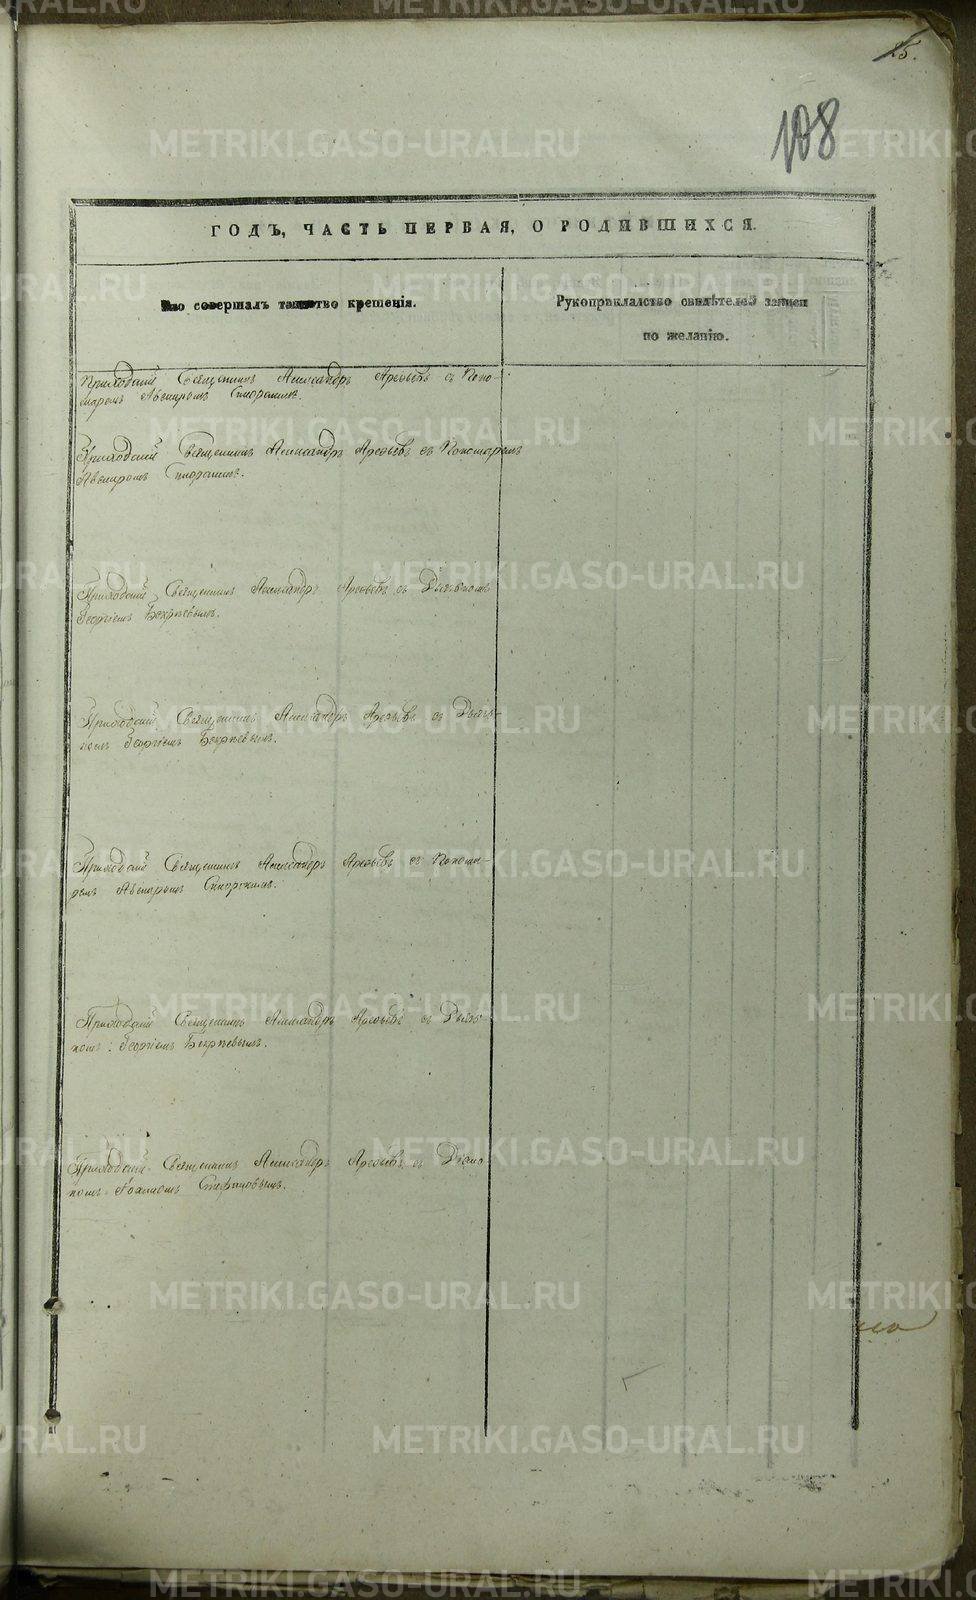 25.
108
ГОДЪ, ЧАСТЬ ПЕРВАЯ, О РОДИВШИХСЯ.
Кто совершалъ таинство крещенія.
Рукоприкладство свидѣтелей записи
по желанію.
Приходскій Священникъ Александръ Арефьевъ съ Поно-
маремъ Авениромъ
Приходскій Священникъ Александръ Арефьевъ съ Пономаремъ
Авениромъ
Приходскій Священникъ Александръ Арефьевъ съ Дьячкомъ
Георгіемъ
Приходскій Священникъ Александръ Арефьевъ съ Дьяч-
комъ Георгіемъ
Приходскій Священникъ Александръ Арефьевъ съ Понома-
ремъ Авениромъ
Приходскій Священникъ Александръ Арефьевъ съ Дьяч-
комъ Георгіемъ
Приходскій Священникъ Александръ Арефьевъ съ Діако-
номъ Іоанномъ Стефановымъ.
METRIKI.GASO-URAL.RU